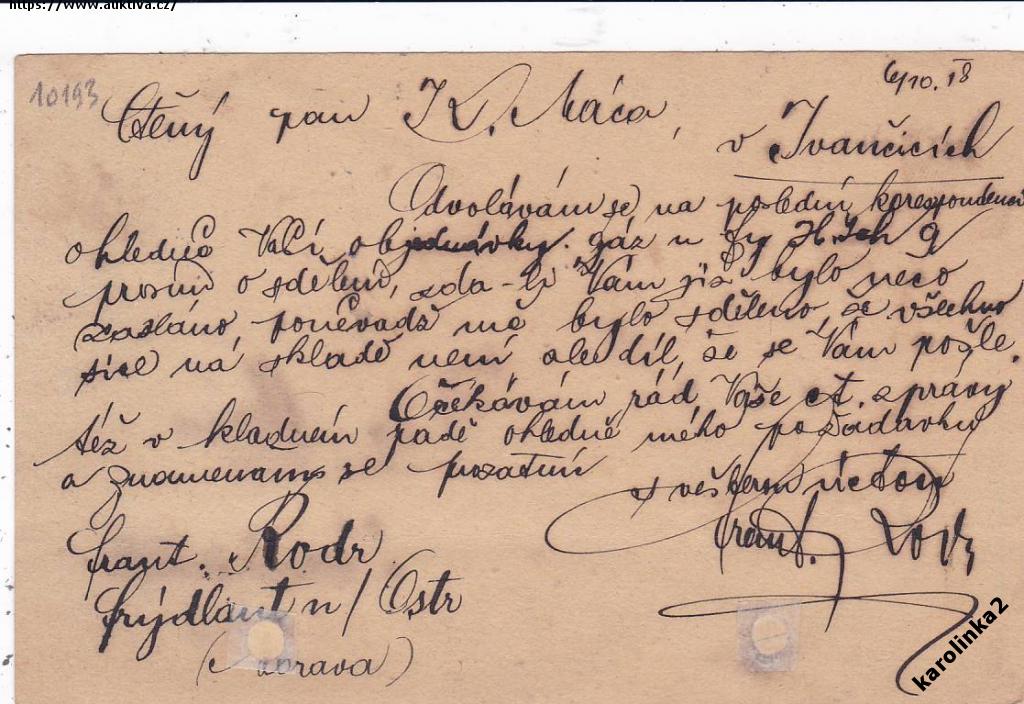 https://www.auktiva.cz/
10193
6/10. 18
Ctěný pan K. Máca,
v Ivančicích
Odvolávám se na poslední korespondenci
ohledně Vaší objednávky gáz u fy
prosím o sdělení, zda-li Vám již bylo něco
zasláno poněvadž mě bylo sděleno, že všechno
sice na skladě není ale díl, že se Vám pošle.
Očekávám rád Vaše ct. zprávy
též v kladném pádě ohledně mého požadavku
a znamenám se prozatím
s veškerou úctou
Frant. Rodr
Frant. Rodr
Frýdlant n/Ostr
(Morava)
karolinka2